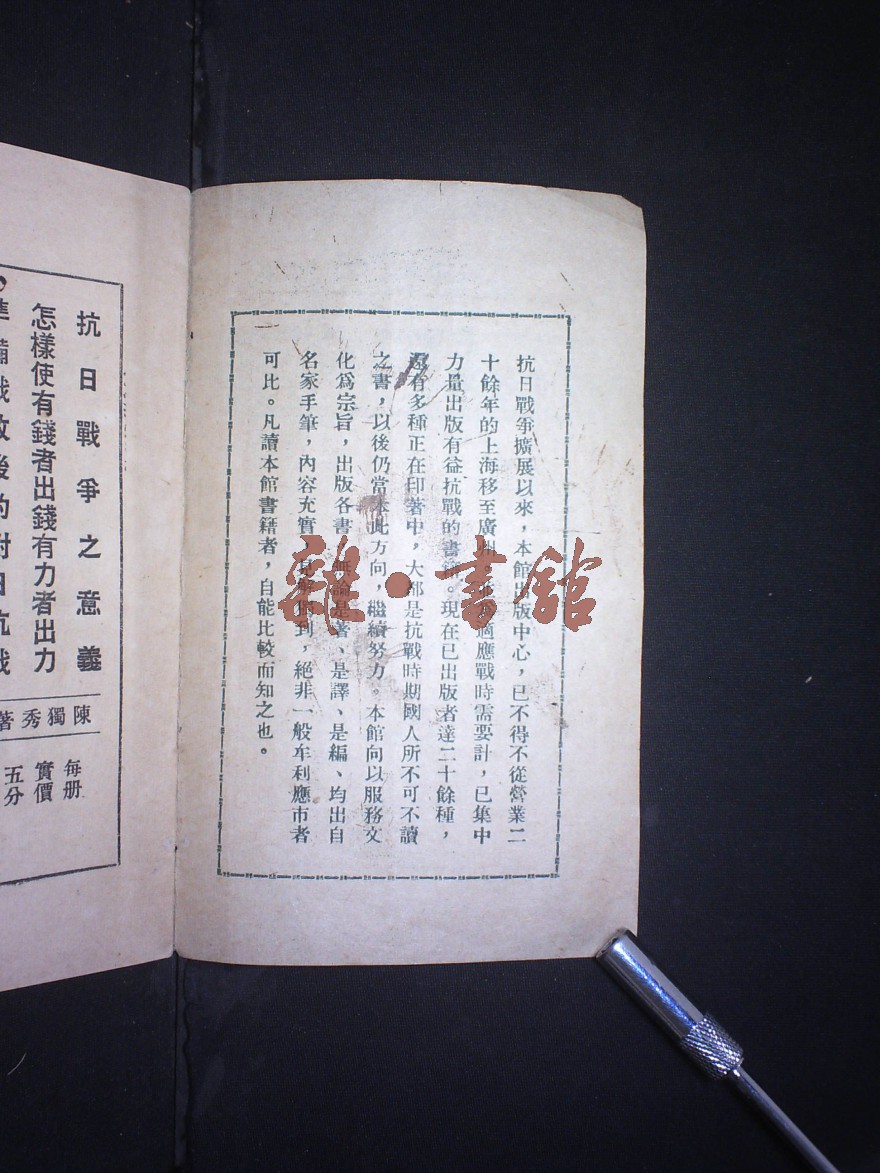 抗日戰爭擴展以來，本館出版中心，已不得不從營業二
十餘年的上海移至廣州。適應戰時需要計，已集中
力量出版有益抗戰的書籍。現在已出版者達二十餘種，
還有多種正在印著中，大都是抗戰時期國人所不可不讀
之書，以後仍當本此方向，繼續努力。本館向以服務文
化爲宗旨，出版各書，無論是著、是譯、是編、均出自
名家手筆，內容充實，到，絕非一般牟利應市者
可比。凡讀本館書籍者，自能比較而知之也。
抗日戰爭之意義
怎樣使有錢者出錢有力者出力
準備戰敗後的對日抗戰
陳獨秀著
每册
實價
五分
雜·書館